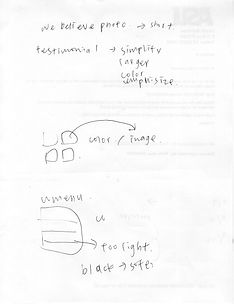 we believe photo → short
testimonial → simplify
larger
color
emphasize.
color / image.
menu
u
→ too light.
black → softer